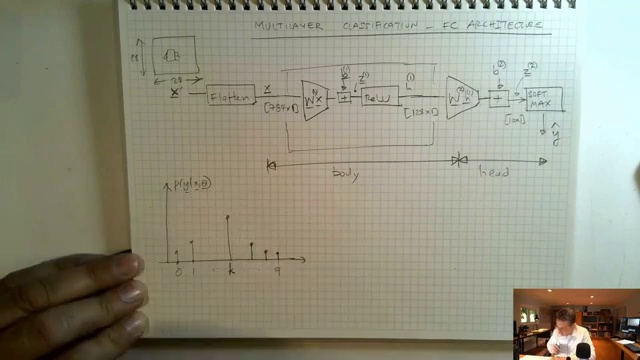 MULTILAYER CLASSIFICATION - FC ARCHITECTURE
28
28
x'
Flatten
x
[784x1]
W x
+
z(1)
ReLU
h(1)
[128x1]
W h
b(2)
+
z(2)
[10x]
SOFT
MAX
ŷ
body
head
p(y|x,θ)
0 1 k 9